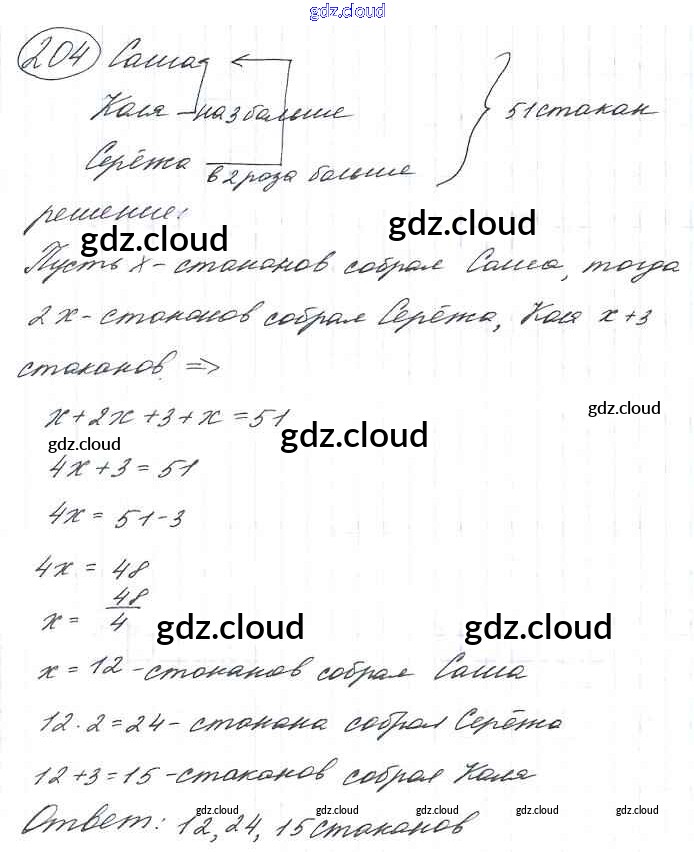 gdz.cloud
204 Саша
Коля — на 3 больше
51 стакан
Серёжа
в 2 раза больше
решение:
gdz.cloud gdz.cloud
Пусть x - стаканов собрал Саша, тогда
2x - стаканов собрал Серёжа, Коля x+3
стаканов. =>
x+2x+3+x=51
gdz.cloud gdz.cloud gdz.cloud
4x+3=51
4x=51-3
4x=48
x=48/4
gdz.cloud gdz.cloud
x=12 - стаканов собрал Саша
12·2=24 - стакана собрал Серёжа
12+3=15 - стаканов собрал Коля
gdz.cloud gdz.cloud gdz.cloud gdz.cloud
Ответ: 12, 24, 15 стаканов